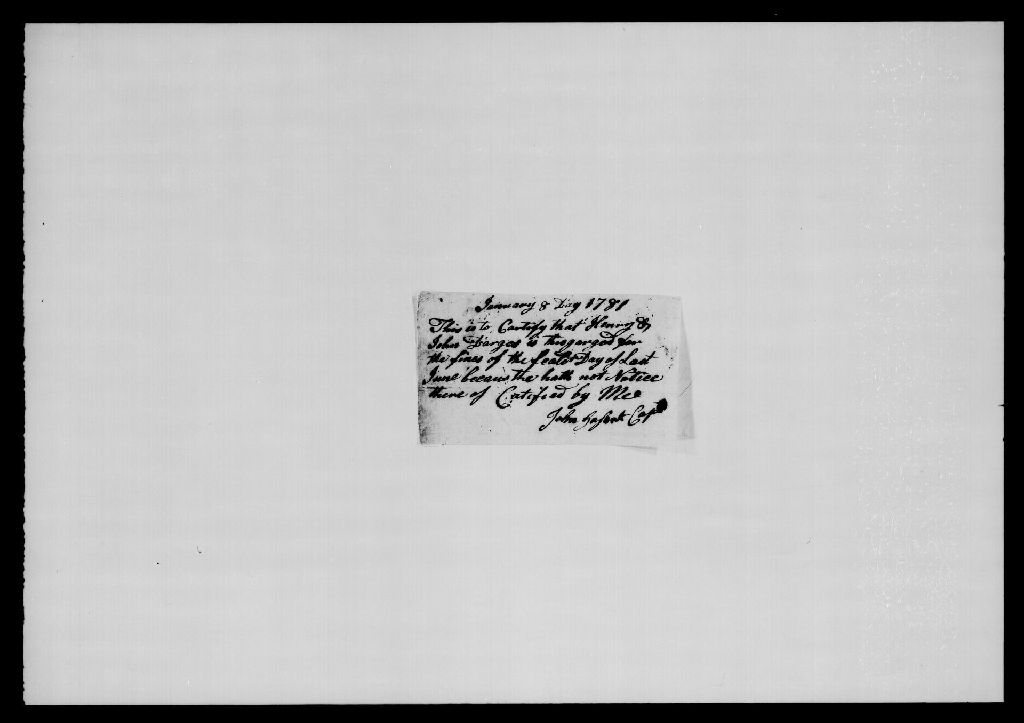 January 8 Day 1781
This is to Certify that Henry &
John Darges is for
the fines of the Day of Last
June becaus the hath not Notice
there of Certified by Me
John Capt